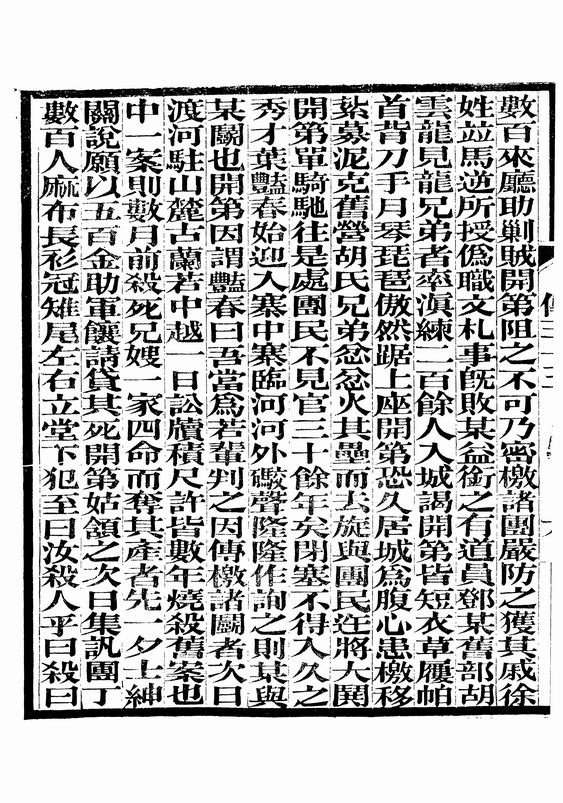 數百來廳助剿賊開第阻之不可乃密檄諸團嚴防之獲其戚徐
姓並馬逆所授僞職文札事旣敗某益銜之有道員鄧某舊部胡
雲龍見龍兄弟者率滇練二百餘人入城謁開第皆短衣草屨帕
首背刀手月琴琵琶傲然踞上座開第恐久居城爲腹心患檄移
紮募泥克舊營胡氏兄弟忿忿火其壘而去旋與團民迕將大鬨
開第單騎馳往是處團民不見官三十餘年矣閉塞不得入久之
秀才葉豔春始迎入寨中寨臨河河外礮聲隆隆作詢之則某與
某鬬也開第因謂豔春曰吾當爲若輩判之因傳檄諸鬬者次日
渡河駐山麓古蘭若中越一日訟牘積尺許皆數年燒殺舊案也
中一案則數月前殺死兄嫂一家四命而奪其產者先一夕士紳
關說願以五百金助軍饟請貸其死開第姑頷之次日集訊團丁
數百人麻布長衫冠雉尾左右立堂下犯至曰汝殺人乎曰殺曰